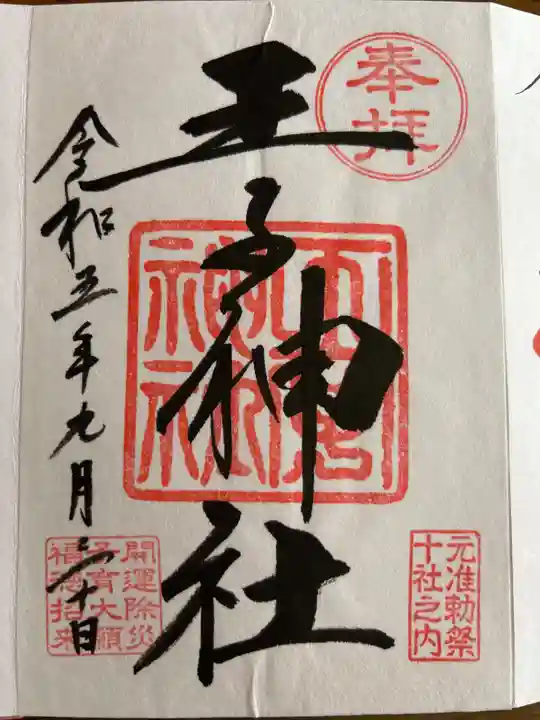 奉拝
王子神社
元准勅祭
十社之内
令和五年九月三十日
開運除災
子育大願
福徳招来